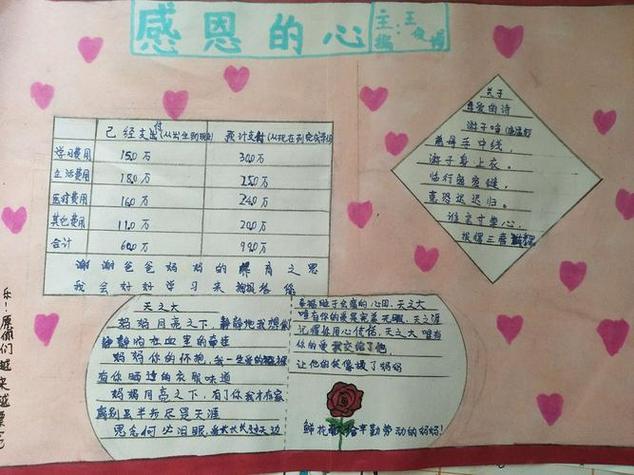 感恩的心
主编:王
已经支付(从出生到现在) 预计支付(从现在到完成学业)
学习费用 15.0万 30.0万
生活费用 18.0万 25.0万
医疗费用 16.0万 24.0万
其他费用 11.0万 20.0万
合计 60.0万 99.0万
谢谢爸爸妈妈的养育之恩
我会好好学习来报答你
关于
母爱的诗
游子吟
慈母手中线,
游子身上衣。
临行密密缝,
意恐迟迟归。
谁言寸草心,
报得三春
天之大
妈妈月亮之下,静静地我想你
静静淌在血里的牵挂
妈妈你的怀抱,我一生爱的
有你晒过的衣服味道
妈妈月亮之下,有了你我才有家
离别虽半步即是天涯
思念何必泪眼,
的心田,天之大
唯有你的爱是完美无瑕,天之涯
记得你用心传话,天之大唯有
你的爱我交给了他,
让他的
鲜花 辛勤劳动的妈妈!
乐!愿你们越来越漂亮